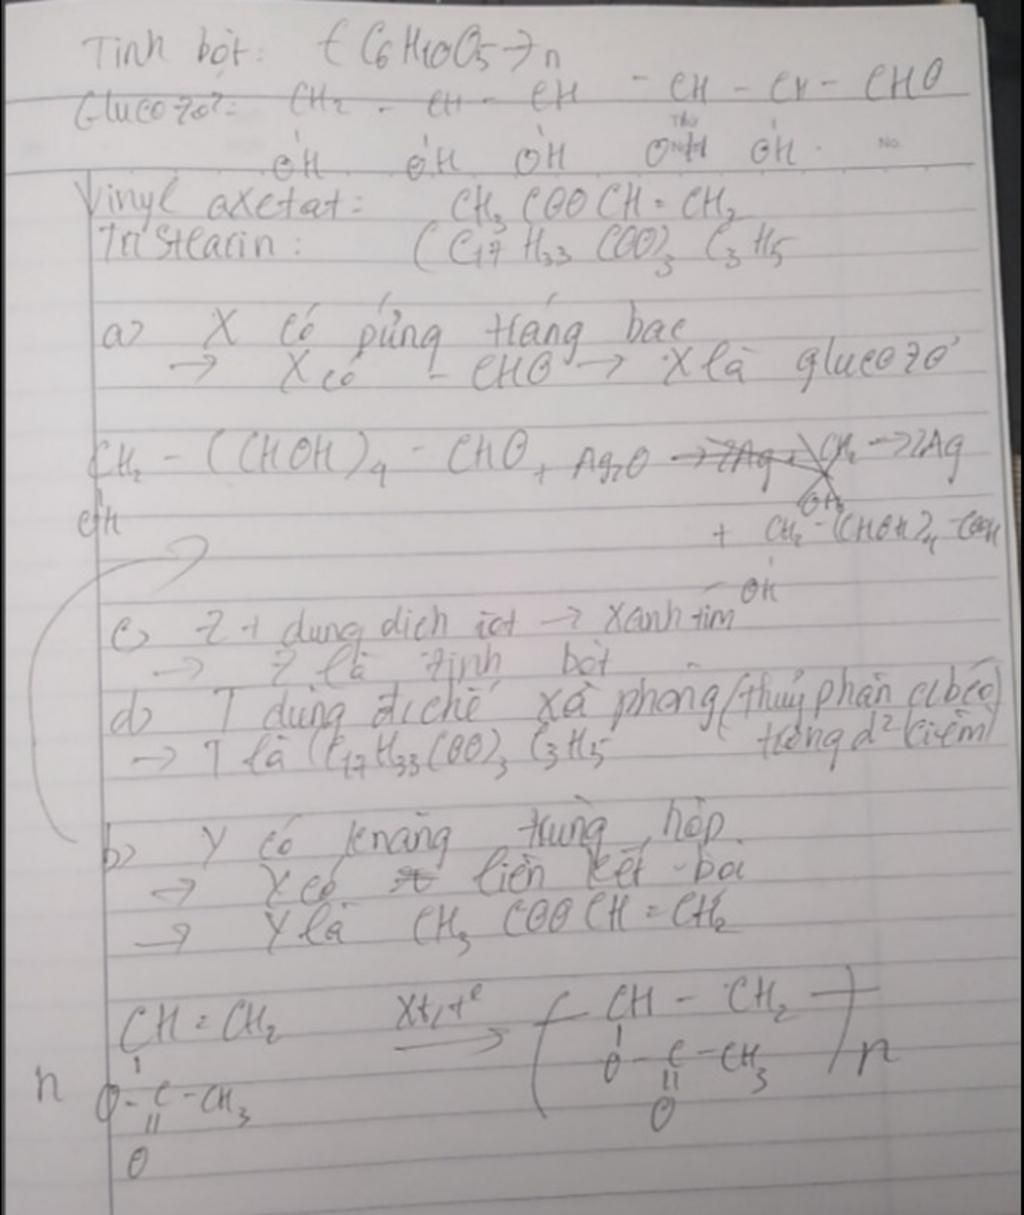 Tinh bột: (C6H10O5)n
Glucozơ: CH2 - CH - CH - CH - CH - CHO
OH OH OH OH OH
Thứ
No.
Vinyl axetat: CH3COOCH=CH2
Tristearin: (C17H33COO)3C3H5
a) X có pứng tráng bạc
→ X có - CHO → X là glucozơ
CH2 - (CHOH)4 - CHO + Ag2O → 2Ag
OH
+ CH2-(CHOH)4-COOH
OH
c) Z + dung dịch iot → xanh tím
→ Z là tinh bột
d) T dùng đ/chế xà phòng (thuỷ phân c/béo)
→ T là (C17H33COO)3C3H5 trong d² kiềm)
b) Y có knăng trùng hợp.
→ X có liên kết bội
→ Y là CH3COOCH=CH2
CH=CH2 xt, t° ( CH - CH2 )n
n O-C-CH3 O-C-CH3
O O